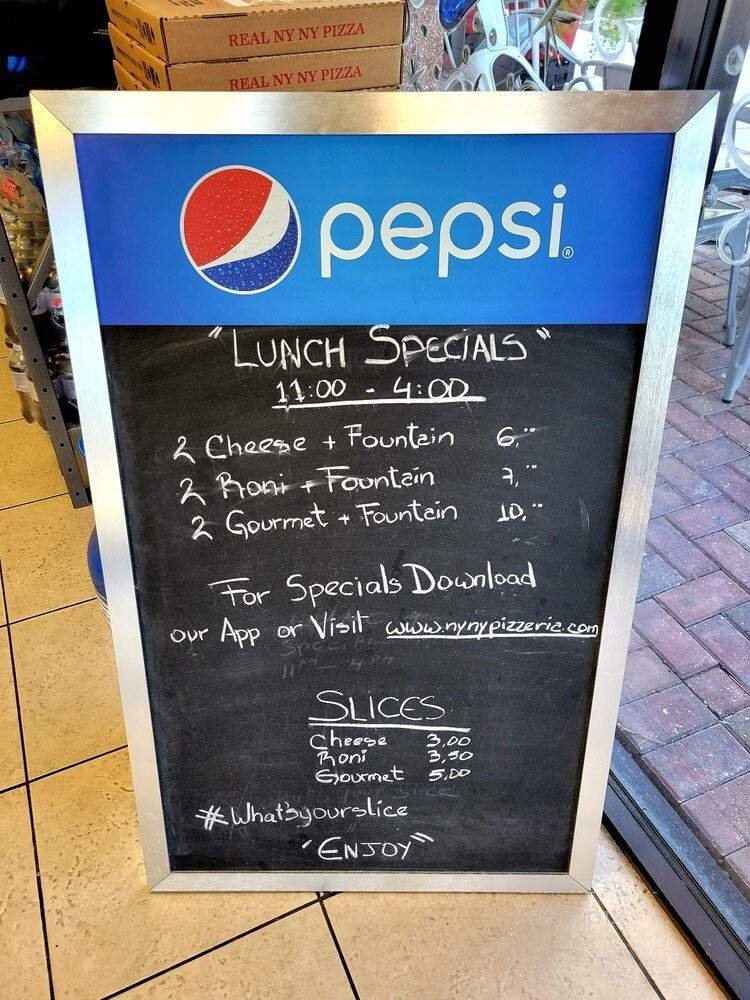 REAL NY NY PIZZA
REAL NY NY PIZZA
pepsi®
"LUNCH SPECIALS"
11:00 - 4:00
2 Cheese + Fountain 6,00
2 Roni + Fountain 7,00
2 Gourmet + Fountain 10,00
For Specials Download
our App or Visit www.nynypizzeria.com
SLICES
Cheese 3,00
Roni 3,50
Gourmet 5,00
#What'syourslice
"ENJOY"